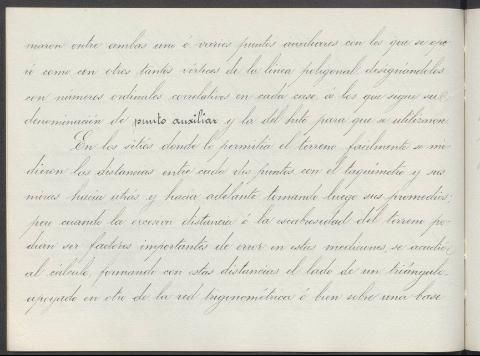 maron entre ambas uno ó varios puntos auxiliares con los que se ope
ró como con otros tantos vértices de la línea poligonal, designándolos
con números ordinales correlativos en cada caso, á los que sigue su
denominación de punto auxiliar y la del hito para que se utilizaron.
En los sitios donde lo permitía el terreno facilmente se mi-
dieron las distancias entre cada dos puntos con el taquímetro y sus
miras hacia atrás y hacia adelante tomando luego sus promedios;
pero cuando la excesiva distancia ó la escabrosidad del terreno po-
dían ser factores importantes de error en estas mediciones, se acudió
al cálculo, formando con estas distancias el lado de un triángulo,
apoyado en otro de la red trigonométrica ó bien sobre una base